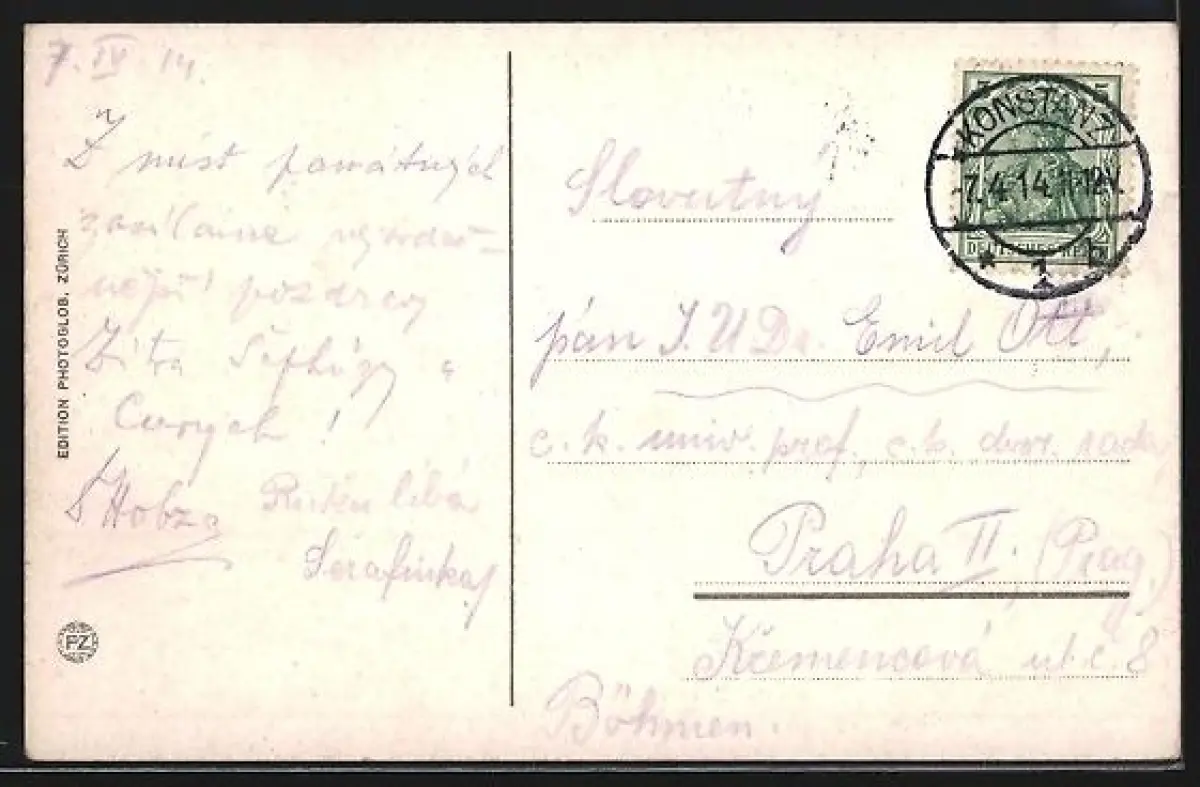 7. IV. 14.
Z míst památných
zasíláme nejsrdeč-
nější pozdravy
Zita
Curych!
Hobza
Ruku líbá
Serafinka
EDITION PHOTOGLOB, ZÜRICH
PZ
KONSTANZ
-7.4.14.11-12V.
* 1 b
5 5
DEUTSCHES REICH
Slovutný
pán J.U.Dr. Emil Ott,
c.k. univ. prof., c.k. dvor. rada
Praha II. (Prag.)
Křemencová ul. č. 8
Böhmen.